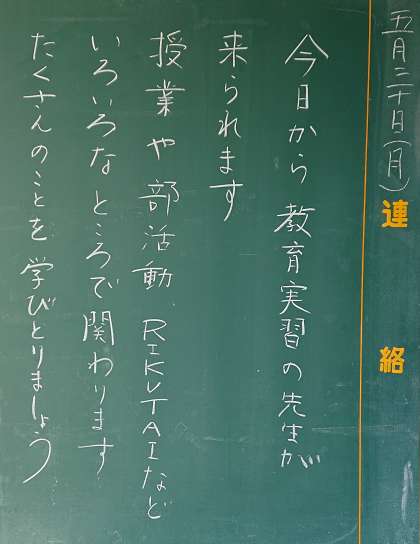 五月二十日(月)
連絡
今日から教育実習の先生が
来られます
授業や部活動、RIKUTAIなど
いろいろなところで関わります
たくさんのことを学びとりましょう